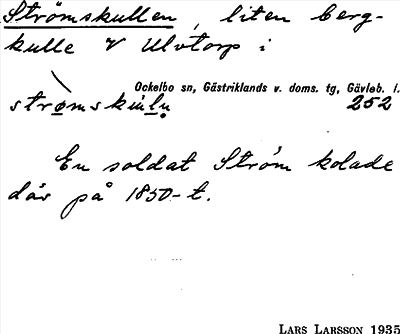 Strömskullen, liten berg-
kulle V Ulvtorp i
Ockelbo sn, Gästriklands v. doms. tg, Gävleb. l.
252
En soldat Ström kolade
där på 1850-t.
LARS LARSSON 1935